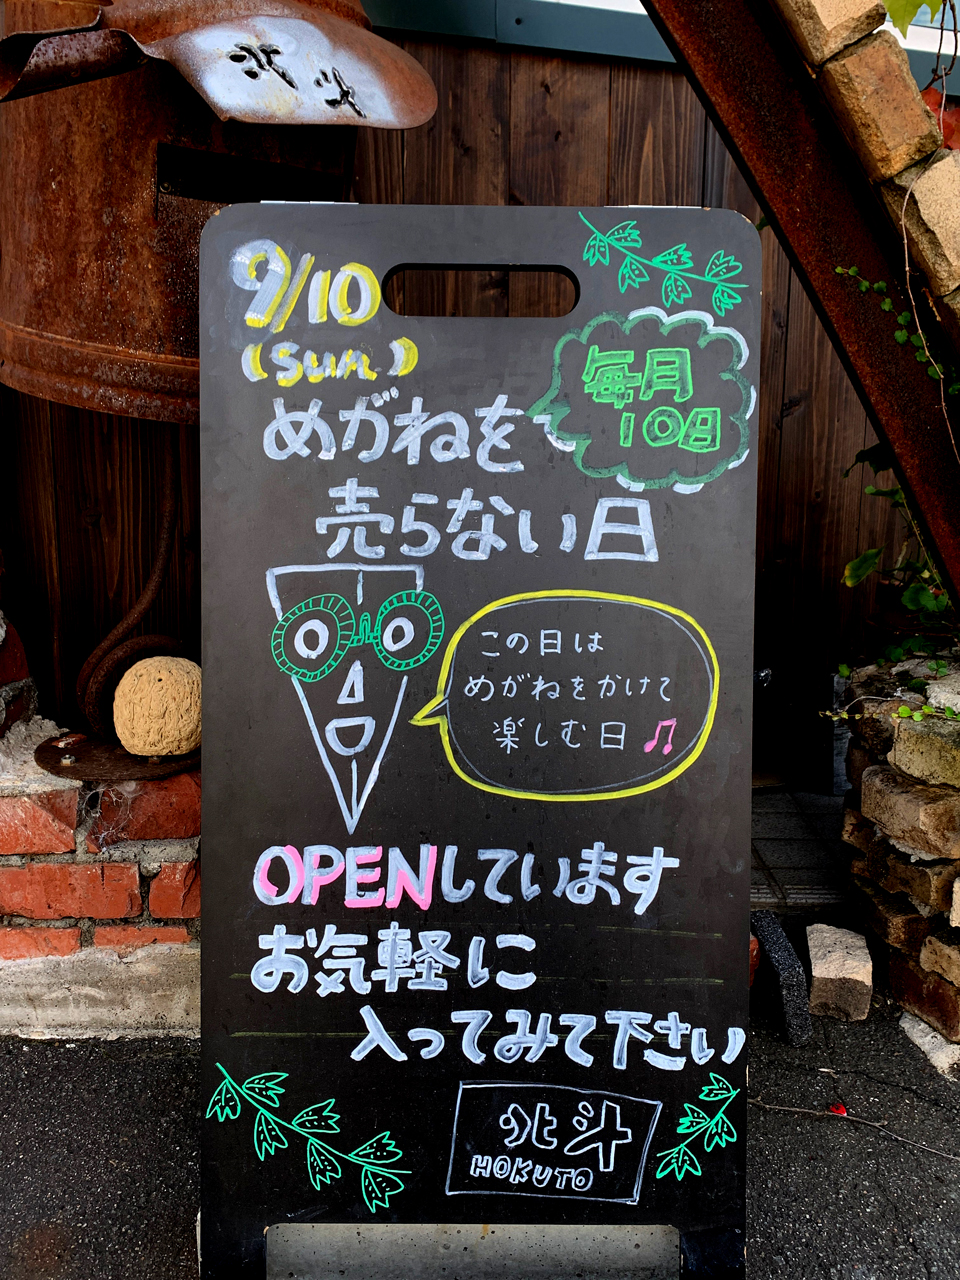 北斗
9/10
(Sun)
毎月
10日
めがねを
売らない日
この日は
めがねをかけて
楽しむ日♫
OPENしています
お気軽に
入ってみて下さい
北斗
HOKUTO